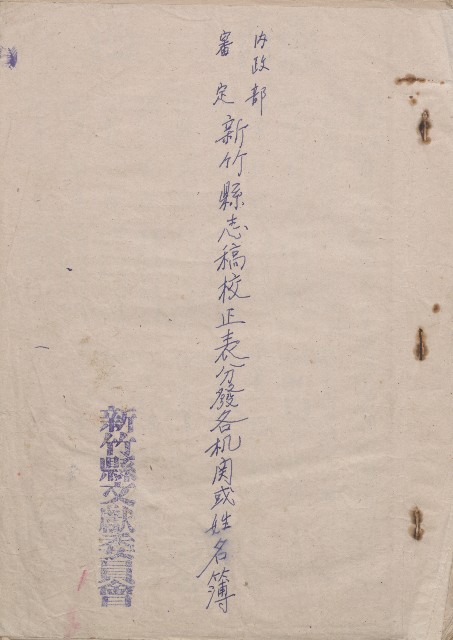 內政部
審定新竹縣志稿校正表分發各机関或姓名簿
新竹縣文獻委員會